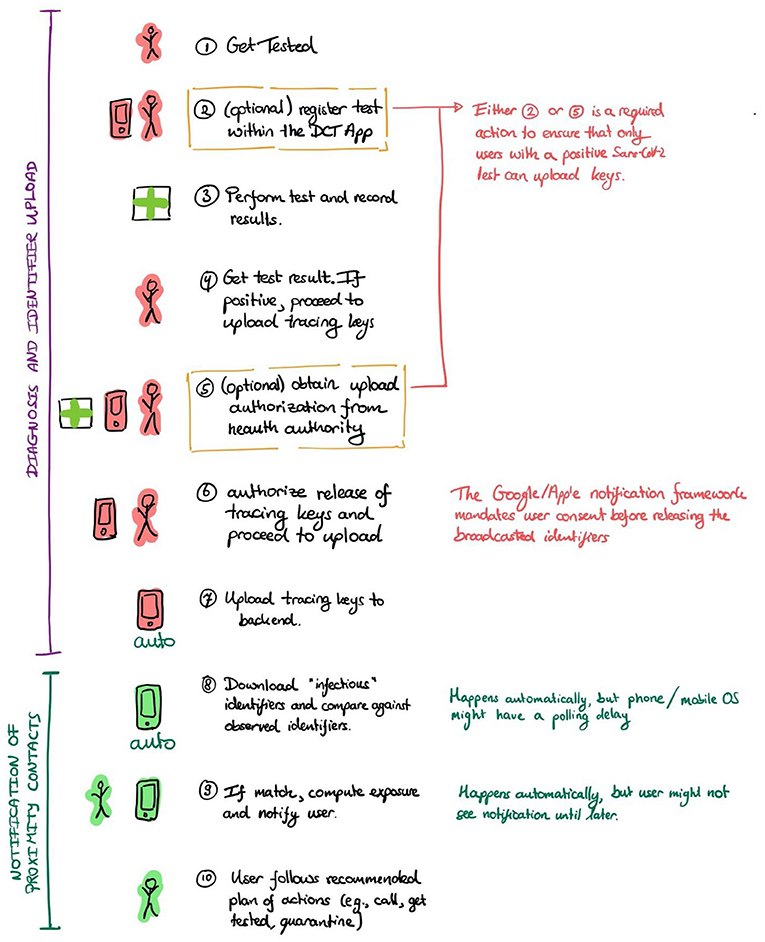 DIAGNOSIS AND IDENTIFIER UPLOAD
① Get Tested
② (optional) register test
within the DCT App
Either ② or ⑤ is a required
action to ensure that only
users with a positive Sars-CoV-2
test can upload keys.
③ Perform test and record
results.
④ Get test result. If
positive, proceed to
upload tracing keys
⑤ (optional) obtain upload
authorization from
heauth authority
⑥ authorize release of
tracing keys and
proceed to upload
The Google/Apple notification framework
mandates user consent before releasing the
broadcasted identifiers
⑦ Upload tracing keys to
backend.
auto
NOTIFICATION OF
PROXIMITY CONTACTS
⑧ Download "infectious"
identifiers and compare against
observed identifiers.
auto
Happens automatically, but phone/mobile OS
might have a polling delay
⑨ If match, compute exposure
and notify user.
Happens automatically, but user might not
see notification until later.
⑩ User follows recommended
plan of actions (e.g., call, get
tested, quarantine)